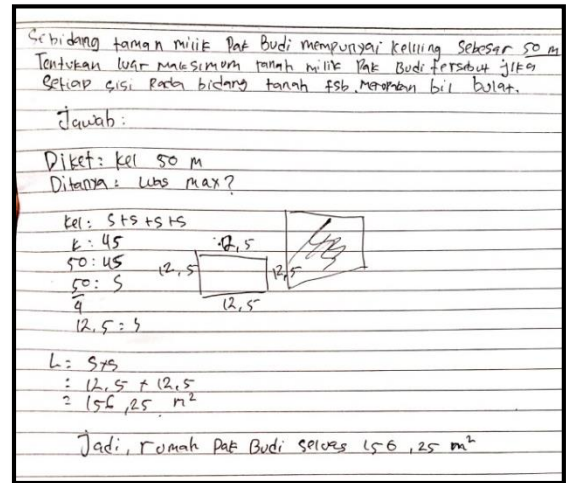 Sebidang taman milik Pak Budi mempunyai keliling sebesar 50 m
Tentukan luar maksimum tanah milik Pak Budi tersebut jika
Setiap sisi pada bidang tanah tsb. Merupakan bil bulat.
Jawab:
Diket: kel 50 m
Ditanya: luas max?
kel: S+S+S+S
k: 4S
50: 4S
50: S
4
12,5 : S
12,5
12,5
12,5
12,5
L: S+S
: 12,5 + 12,5
= 156,25 m²
Jadi, rumah Pak Budi seluas 156,25 m²